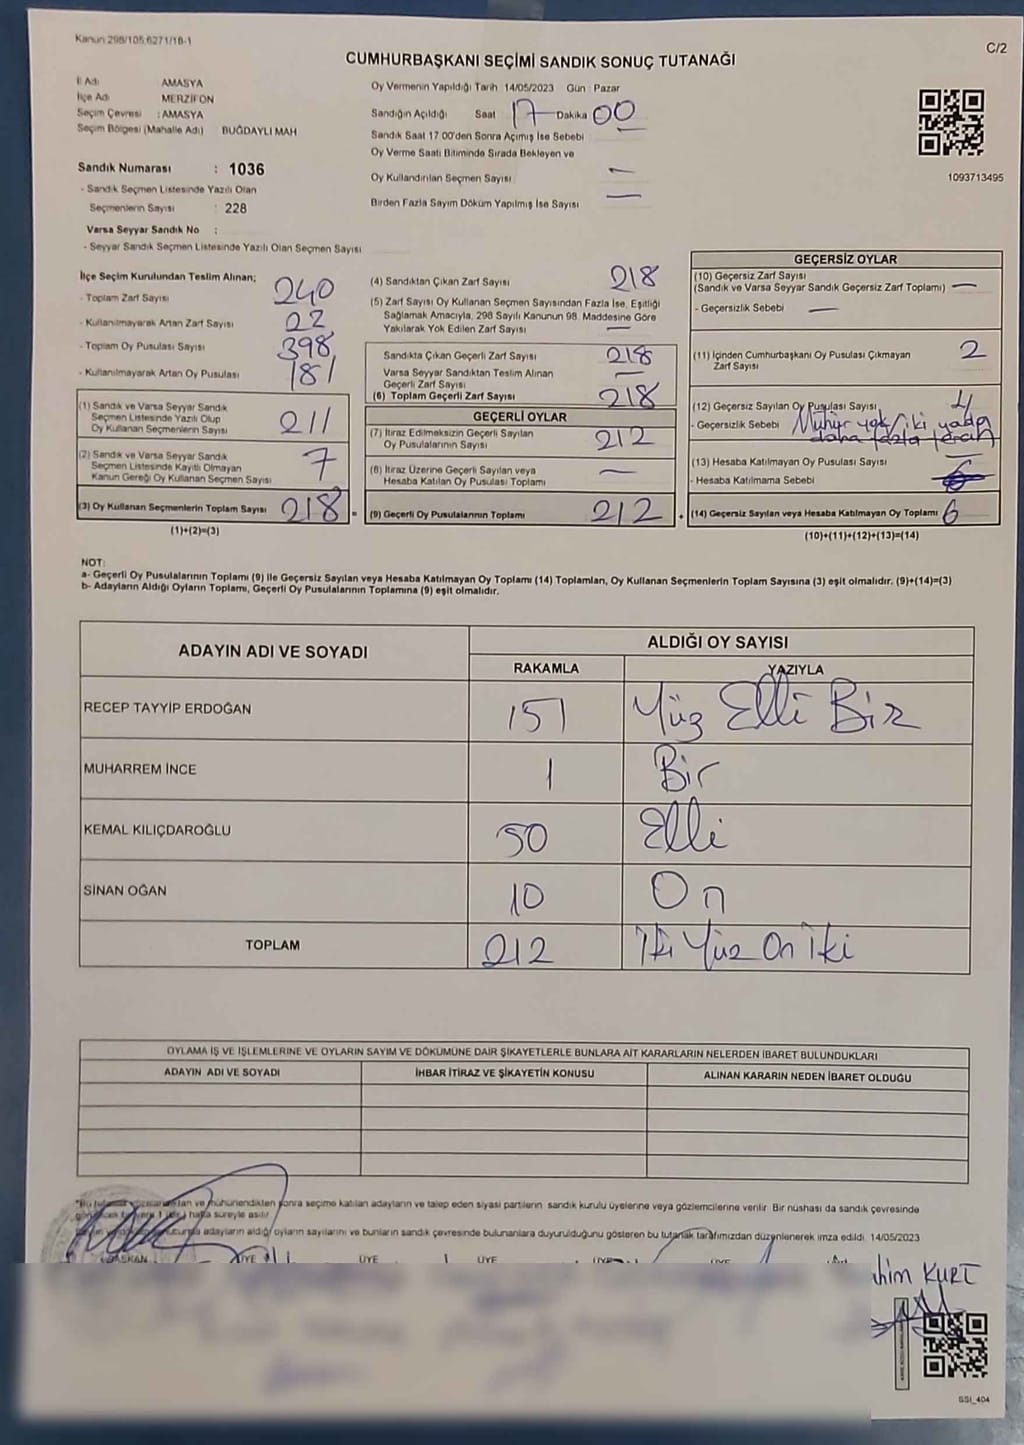 Kanun 298/105,6271/18-1
C/2
CUMHURBAŞKANI SEÇİMİ SANDIK SONUÇ TUTANAĞI
İl Adı : AMASYA
İlçe Adı : MERZİFON
Seçim Çevresi : AMASYA
Seçim Bölgesi (Mahalle Adı) BUĞDAYLI MAH
Oy Vermenin Yapıldığı Tarih 14/05/2023 Gün : Pazar
Sandığın Açıldığı Saat 17 Dakika 00
Sandık Saat 17 00'den Sonra Açımış İse Sebebi
Oy Verme Saati Bitiminde Sırada Bekleyen ve
Oy Kullandırılan Seçmen Sayısı —
Birden Fazla Sayım Döküm Yapılmış İse Sayısı —
1093713495
Sandık Numarası : 1036
- Sandık Seçmen Listesinde Yazılı Olan
Seçmenlerin Sayısı : 228
Varsa Seyyar Sandık No :
- Seyyar Sandık Seçmen Listesinde Yazılı Olan Seçmen Sayısı
İlçe Seçim Kurulundan Teslim Alınan;
- Toplam Zarf Sayısı 240
- Kullanılmayarak Artan Zarf Sayısı 22
- Toplam Oy Pusulası Sayısı 398
- Kullanılmayarak Artan Oy Pusulası 181
(1) Sandık ve Varsa Seyyar Sandık
Seçmen Listesinde Yazılı Olup
Oy Kullanan Seçmenlerin Sayısı 211
(2) Sandık ve Varsa Seyyar Sandık
Seçmen Listesinde Kayıtlı Olmayan
Kanun Gereği Oy Kullanan Seçmen Sayısı 7
(3) Oy Kullanan Seçmenlerin Toplam Sayısı 218 =
(1)+(2)=(3)
(4) Sandıktan Çıkan Zarf Sayısı 218
(5) Zarf Sayısı Oy Kullanan Seçmen Sayısından Fazla İse, Eşitliği
Sağlamak Amacıyla, 298 Sayılı Kanunun 98. Maddesine Göre
Yakılarak Yok Edilen Zarf Sayısı —
Sandıkta Çıkan Geçerli Zarf Sayısı 218
Varsa Seyyar Sandıktan Teslim Alınan
Geçerli Zarf Sayısı —
(6) Toplam Geçerli Zarf Sayısı 218
GEÇERLİ OYLAR
(7) İtiraz Edilmeksizin Geçerli Sayılan
Oy Pusulalarının Sayısı 212
(8) İtiraz Üzerine Geçerli Sayılan veya
Hesaba Katılan Oy Pusulası Toplamı —
(9) Geçerli Oy Pusulalarının Toplamı 212 +
GEÇERSİZ OYLAR
(10) Geçersiz Zarf Sayısı
(Sandık ve Varsa Seyyar Sandık Geçersiz Zarf Toplamı) —
- Geçersizlik Sebebi —
(11) İçinden Cumhurbaşkanı Oy Pusulası Çıkmayan 2
Zarf Sayısı
(12) Geçersiz Sayılan Oy Pusulası Sayısı 4
- Geçersizlik Sebebi Mühür yok/iki yada
daha fazla tercih
(13) Hesaba Katılmayan Oy Pusulası Sayısı —
- Hesaba Katılmama Sebebi
(14) Geçersiz Sayılan veya Hesaba Katılmayan Oy Toplamı 6
(10)+(11)+(12)+(13)=(14)
NOT:
a- Geçerli Oy Pusulalarının Toplamı (9) ile Geçersiz Sayılan veya Hesaba Katılmayan Oy Toplamı (14) Toplamları, Oy Kullanan Seçmenlerin Toplam Sayısına (3) eşit olmalıdır. (9)+(14)=(3)
b- Adayların Aldığı Oyların Toplamı, Geçerli Oy Pusulalarının Toplamına (9) eşit olmalıdır.
ADAYIN ADI VE SOYADI
ALDIĞI OY SAYISI
RAKAMLA YAZIYLA
RECEP TAYYİP ERDOĞAN 151 Yüz Elli Bir
MUHARREM İNCE 1 Bir
KEMAL KILIÇDAROĞLU 50 Elli
SİNAN OĞAN 10 On
TOPLAM 212 İki Yüz On İki
OYLAMA İŞ VE İŞLEMLERİNE VE OYLARIN SAYIM VE DÖKÜMÜNE DAİR ŞİKAYETLERLE BUNLARA AİT KARARLARIN NELERDEN İBARET BULUNDUKLARI
ADAYIN ADI VE SOYADI İHBAR İTİRAZ VE ŞİKAYETİN KONUSU ALINAN KARARIN NEDEN İBARET OLDUĞU
ve mühürlendikten sonra seçime katılan adayların ve talep eden siyasi partilerin sandık kurulu üyelerine veya gözlemcilerine verilir. Bir nüshası da sandık çevresinde
hafta süreyle asılır
adayların aldığı oyların sayılarını ve bunların sandık çevresinde bulunanlara duyurulduğunu gösteren bu tutanak tarafımızdan düzenlenerek imza edildi. 14/05/2023
BAŞKAN ÜYE ÜYE ÜYE ÜYE ÜYE
KURT
SSI_404